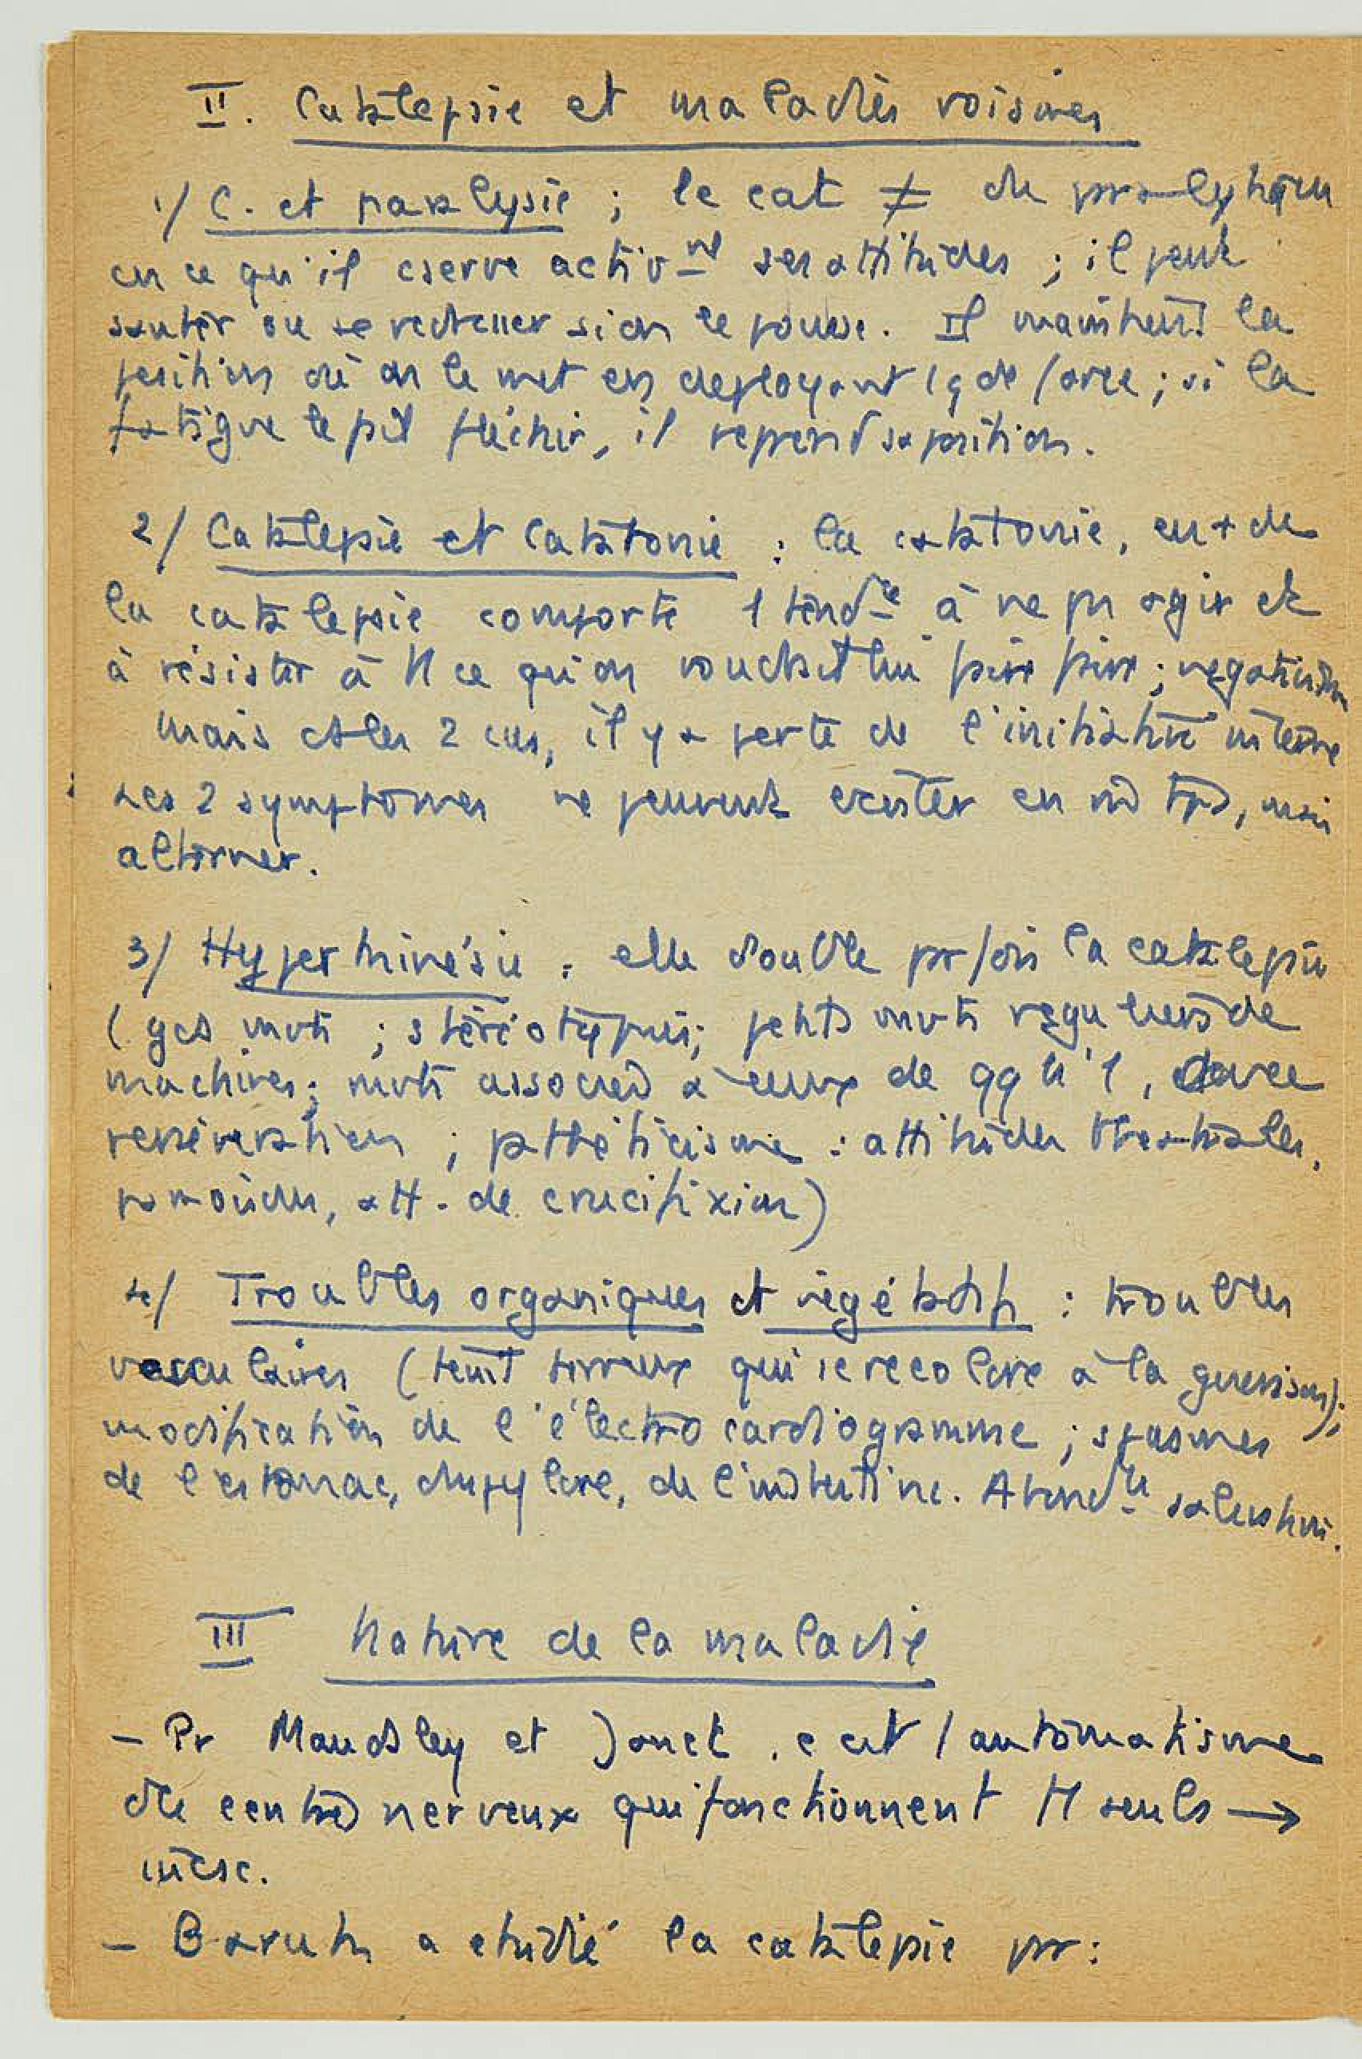 II. Catalepsie et maladies voisines
1/ C. et paralysie ; le cat ≠ du paralytique
en ce qu'il cserve activ-nt ses attitudes ; il peut
sauter ou se redresser si on le pousse. Il maintient la
position où on le met en deployant 1 gde force ; si la
fatigue le fait fléchir, il reprend sa position.
2/ Catalepsie et Catatonie : la catatonie, en + de
la catalepsie comporte 1 tend-ce à ne pas agir et
à résister à tt ce qu'on voudrait lui faire faire ; negativisme
mais ds les 2 cas, il y a perte de l'initiative interne
Les 2 symptomes ne peuvent exister en m tps, mais
alterner.
3/ Hyperkinésie : elle double parfois la catalepsie
(gds mvts ; stéréotypies ; petits mvts reguliers de
machines ; mvts associes à ceux de qqu'1, avec
persévération ; pathéticisme : attitudes théatrales,
 att. de crucifixion)
4/ Troubles organiques et végétatifs : troubles
vasculaires (teint terreux qui se recolore à la guerison) ;
modification de l'électrocardiogramme ; spasmes
de l'estomac, du pylore, de l'intestin. Abond-te salivation.
III Nature de la maladie
- Pr Maudsley et Janet, c est 1 automatisme
de centres nerveux qui fonctionnent tt seuls →
incsc.
- Baruk a etudié la catalepsie par :